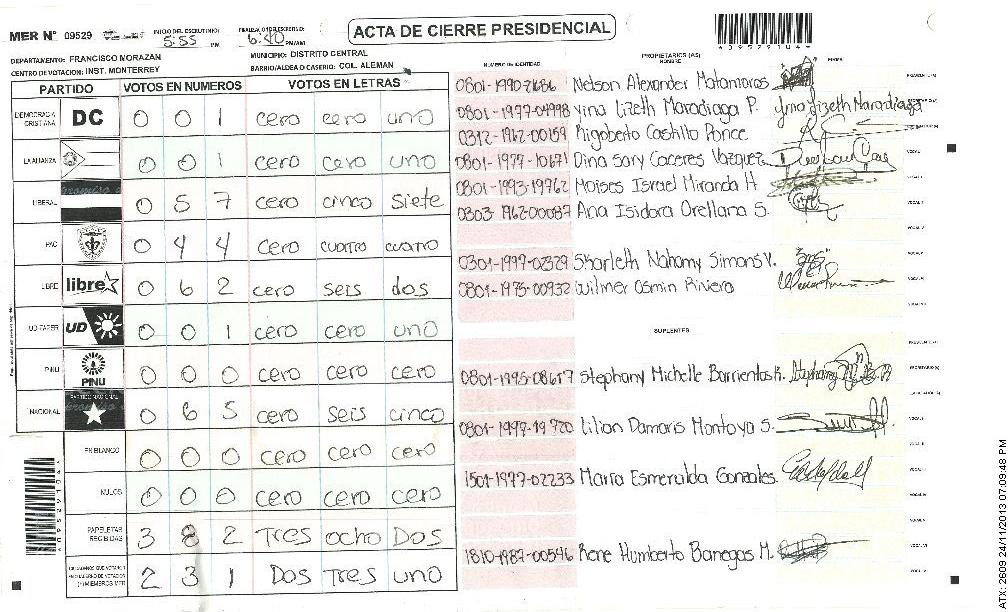 MER Nº 09529
INICIO DEL ESCRUTINIO: 5:55 PM
FINALIZACION DEL ESCRUTINIO: 6:40 PM/AM
ACTA DE CIERRE PRESIDENCIAL
DEPARTAMENTO: FRANCISCO MORAZAN
MUNICIPIO: DISTRITO CENTRAL
CENTRO DE VOTACION: INST. MONTERREY
BARRIO/ALDEA O CASERIO: COL. ALEMAN
PARTIDO VOTOS EN NUMEROS VOTOS EN LETRAS
DEMOCRACIA CRISTIANA DC 0 0 1 cero cero uno
LA ALIANZA 0 0 1 cero cero uno
LIBERAL 0 5 7 cero cinco siete
PAC 0 4 4 cero cuatro cuatro
LIBRE libre 0 6 2 cero seis dos
UD-FAPER UD 0 0 1 cero cero uno
PINU PINU 0 0 0 cero cero cero
NACIONAL PARTIDO NACIONAL 0 6 5 cero seis cinco
EN BLANCO 0 0 0 cero cero cero
NULOS 0 0 0 cero cero cero
PAPELETAS RECIBIDAS 3 8 2 Tres ocho Dos
CIUDADANOS QUE VOTARON EN CUADERNO DE VOTACION (+) MIEMBROS MER 2 3 1 Dos Tres uno
NUMERO DE IDENTIDAD PROPIETARIOS (AS) NOMBRE FIRMA
Nelson Alexander Matamoros
0801-1977-04998 Yina Lizeth Maradiaga P. Yina Lizeth Maradiaga
0312-1962-00159 Rigoberto Castillo Ponce
0801-1977-10671 Dina Sary Caceres Vazquez
0801-1993-19762 Moises Israel Miranda H
0303-1962-00087 Ana Isidora Orellana S.
0301-1997-02329 Skarleth Nahomy Simons V.
0801-1975-00932 Wilmer Osmin Rivera
SUPLENTES
Stephany Michelle Barrientos R.
0801-1997-19720 Lilian Damaris Montoya S.
1501-1977-02233 Maria Esmeralda Gonzales
1810-1987-00546 Rene Humberto Banegas M.
ATX: 2609 24/11/2013 07:09:48 PM